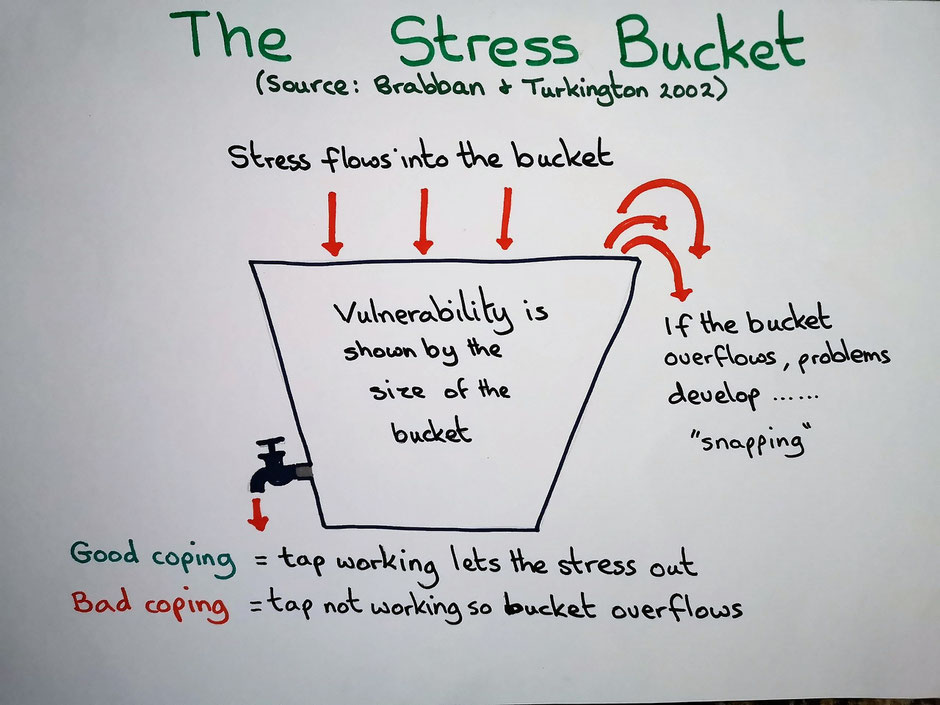 The Stress Bucket
(Source: Brabban & Turkington 2002)
Stress flows into the bucket
Vulnerability is
shown by the
size of the
bucket
If the bucket
overflows, problems
develop ......
"snapping"
Good coping = tap working lets the stress out
Bad coping = tap not working so bucket overflows